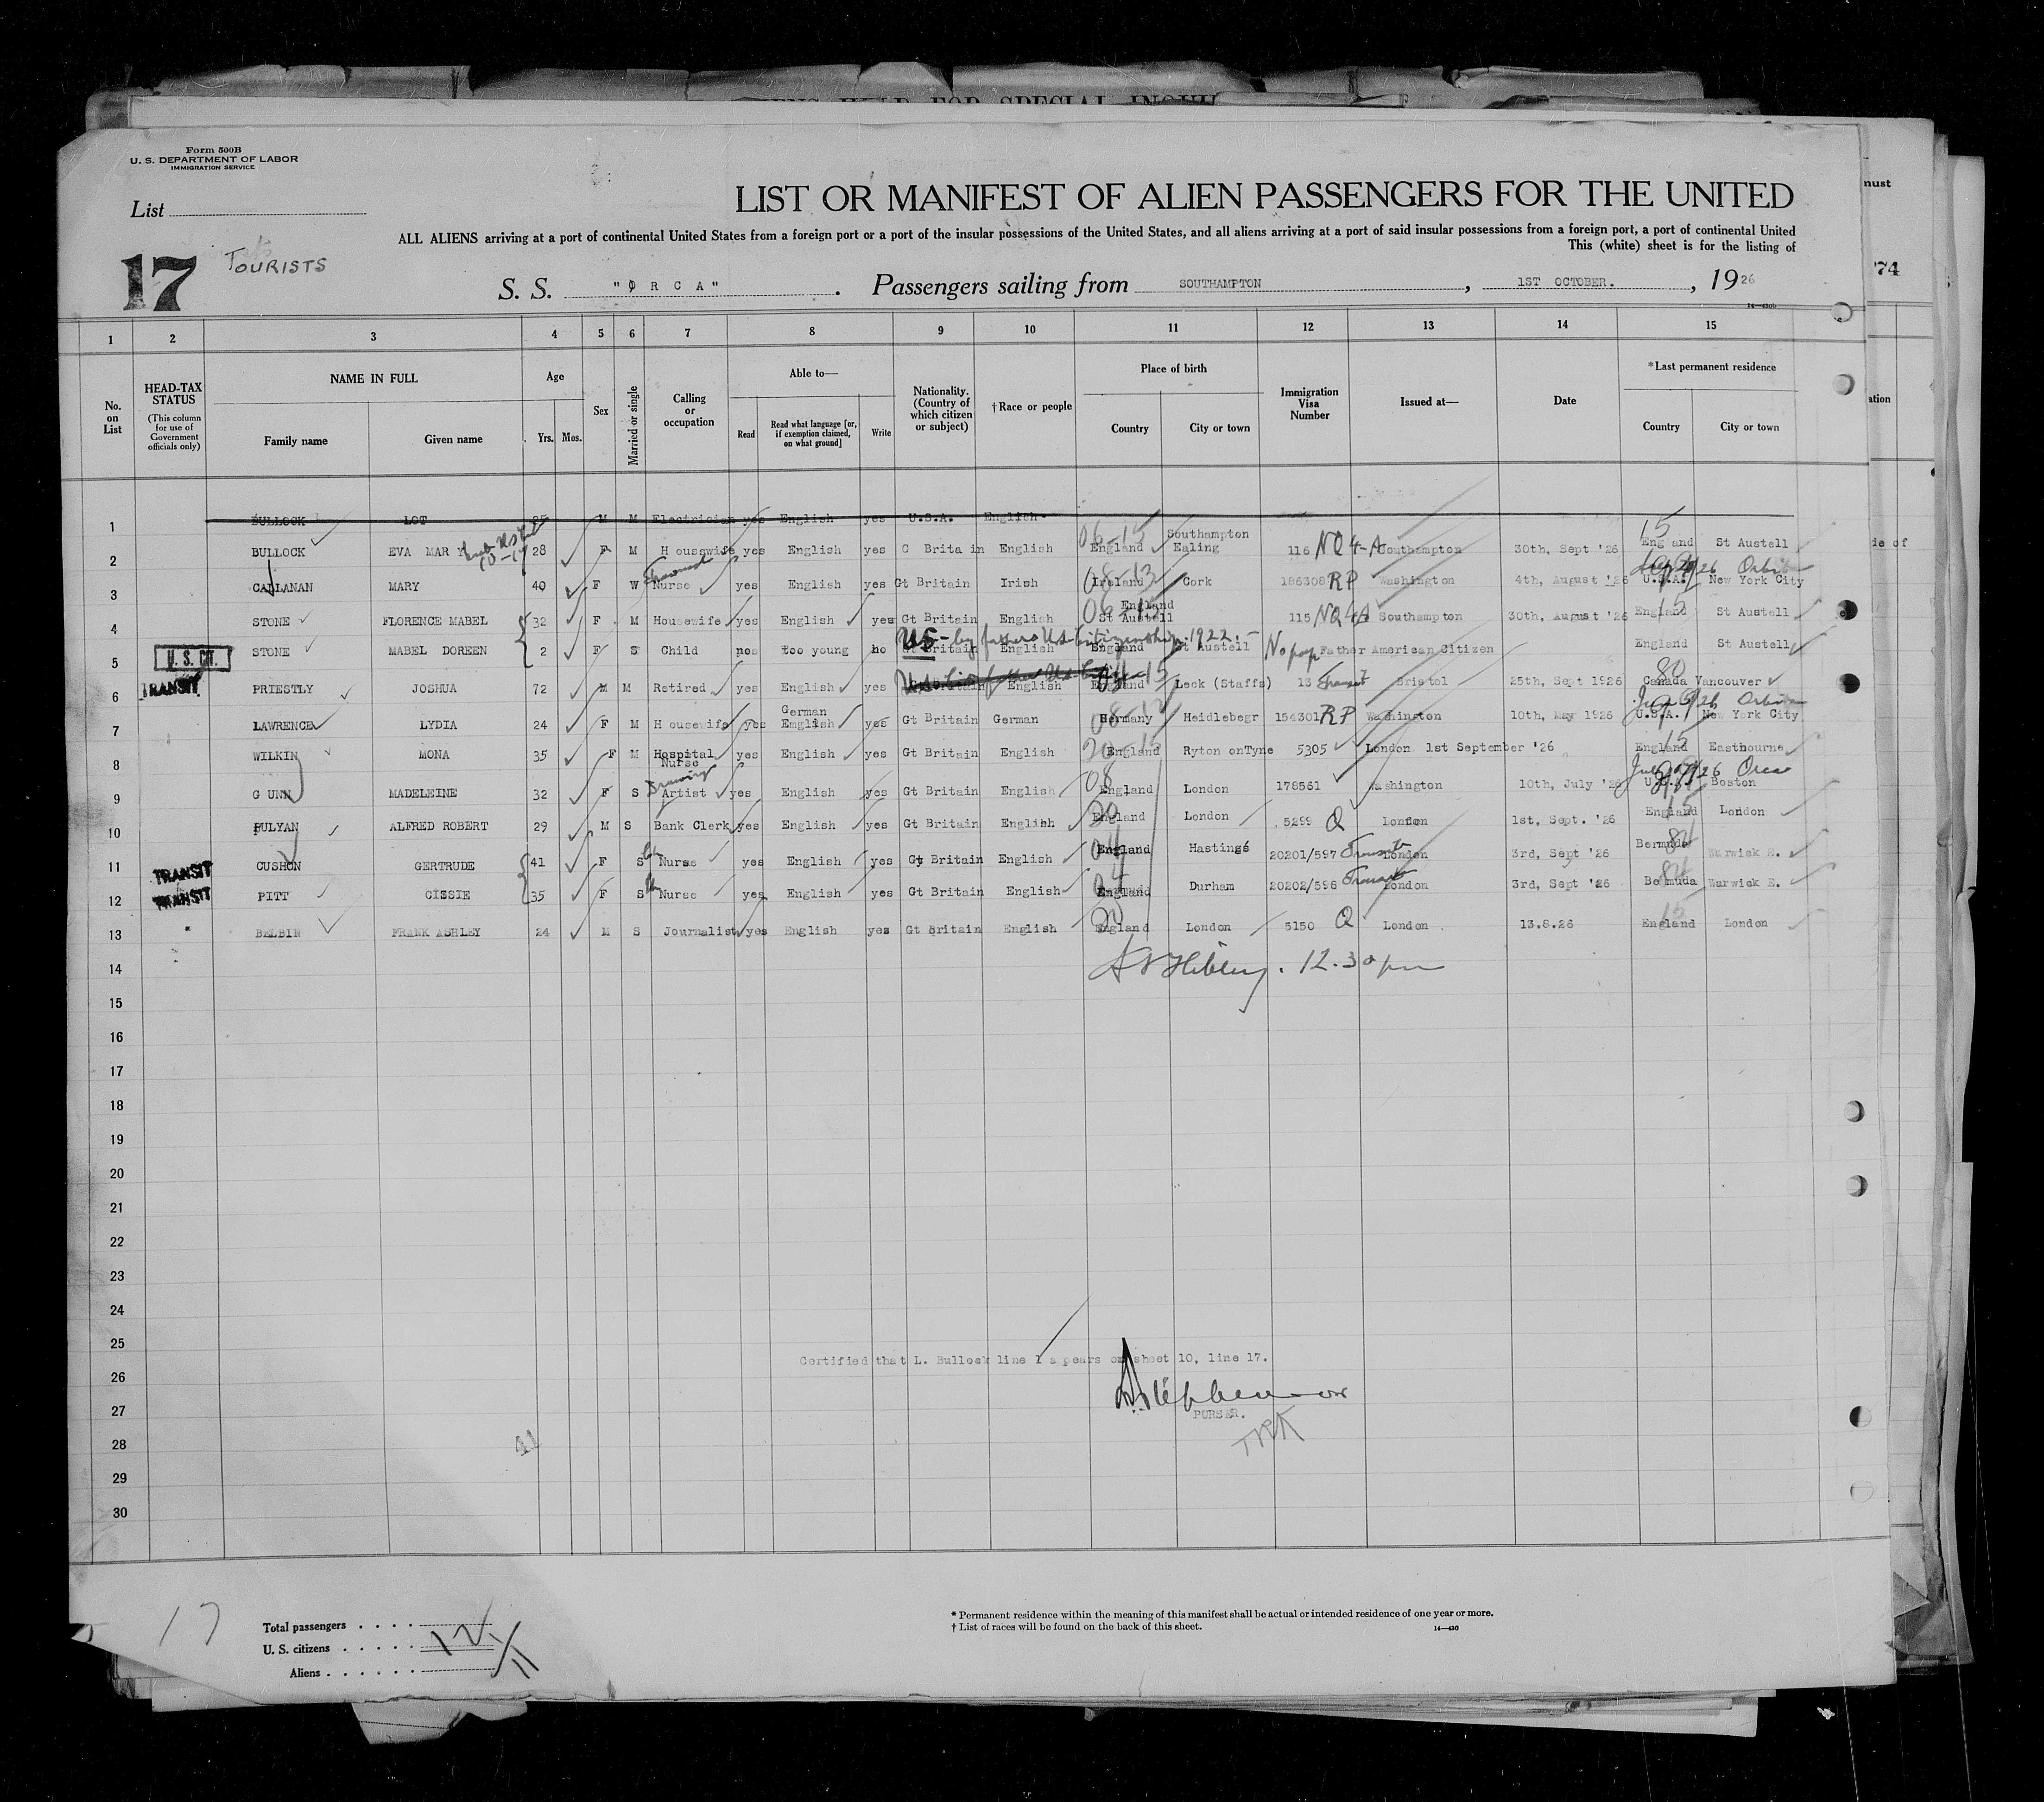 ENS HELD FOR SPECIAL INQUI
Form 500B
U. S. DEPARTMENT OF LABOR
IMMIGRATION SERVICE
List
LIST OR MANIFEST OF ALIEN PASSENGERS FOR THE UNITED
ALL ALIENS arriving at a port of continental United States from a foreign port or a port of the insular possessions of the United States, and all aliens arriving at a port of said insular possessions from a foreign port, a port of continental United
This (white) sheet is for the listing of
17 TOURISTS
S. S. "O R C A". Passengers sailing from SOUTHAMPTON, 1ST OCTOBER., 1926
1 2 3 4 5 6 7 8 9 10 11 12 13 14 15
No. on List
HEAD-TAX STATUS (This column for use of Government officials only)
NAME IN FULL Family name Given name
Age Yrs. Mos.
Sex
Married or single
Calling or occupation
Able to— Read Read what language [or, if exemption claimed, on what ground] Write
Nationality. (Country of which citizen or subject)
†Race or people
Place of birth Country City or town
Immigration Visa Number
Issued at—
Date
*Last permanent residence Country City or town
1 BULLOCK LOT 35 M M Electrician yes English yes U.S.A. English
2 BULLOCK EVA MARY 28 F M Housewife yes English yes G Britain English 06-15 England Southampton Ealing 116 NQ4-A Southampton 30th, Sept '26 15 England St Austell
3 CALLANAN MARY 40 F W Nurse yes English yes Gt Britain Irish 08-13 Ireland Cork 186308 RP Washington 4th, August '26 U.S.A. New York City
4 STONE FLORENCE MABEL 32 F M Housewife yes English yes Gt Britain English 06-15 England St Austell 115 NQ4A Southampton 30th, August '26 15 England St Austell
US-by fathers US Citizenship. 1922.-
5 U. S. CIT. STONE MABEL DOREEN 2 F S Child nos too young no Gt Britain English England St Austell No ppr Father American Citizen England St Austell
6 TRANSIT PRIESTLY JOSHUA 72 M M Retired yes English yes English 04-15 England Leek (Staffs) 13 Transit Bristol 25th, Sept 1926 80 Canada Vancouver
7 LAWRENCE LYDIA 24 F M Housewife yes German English yes Gt Britain German 08-12 Germany Heidlebegr 154301 RP Washington 10th, May 1926 U.S.A. New York City
8 WILKIN MONA 35 F M Hospital Nurse yes English yes Gt Britain English 20-15 England Ryton onTyne 5305 London 1st September '26 15 England Eastbourne
9 GUNN MADELEINE 32 F S Drawing Artist yes English yes Gt Britain English 08 England London 178561 Washington 10th, July '26 U.S.A. Boston
10 FULYAN ALFRED ROBERT 29 M S Bank Clerk yes English yes Gt Britain English 20 England London 5299 Q London 1st, Sept. '26 15 England London
11 TRANSIT CUSHON GERTRUDE 41 F S Nurse yes English yes Gt Britain English 04 England Hastings 20201/597 Transit London 3rd, Sept '26 84 Bermuda Warwick E.
12 TRANSIT PITT CISSIE 35 F S Nurse yes English yes Gt Britain English 04 England Durham 20202/598 Transit London 3rd, Sept '26 84 Bermuda Warwick E.
13 BELBIN FRANK ASHLEY 24 M S Journalist yes English yes Gt Britain English 20 England London 5150 Q London 13.8.26 15 England London
14 12.30 pm
15
16
17
18
19
20
21
22
23
24
25
Certified that L. Bullock line 1 appears on sheet 10, line 17.
26
27 PURSER.
28
29
30
41
17
Total passengers
U. S. citizens
Aliens
12
11
* Permanent residence within the meaning of this manifest shall be actual or intended residence of one year or more.
† List of races will be found on the back of this sheet.
14—430